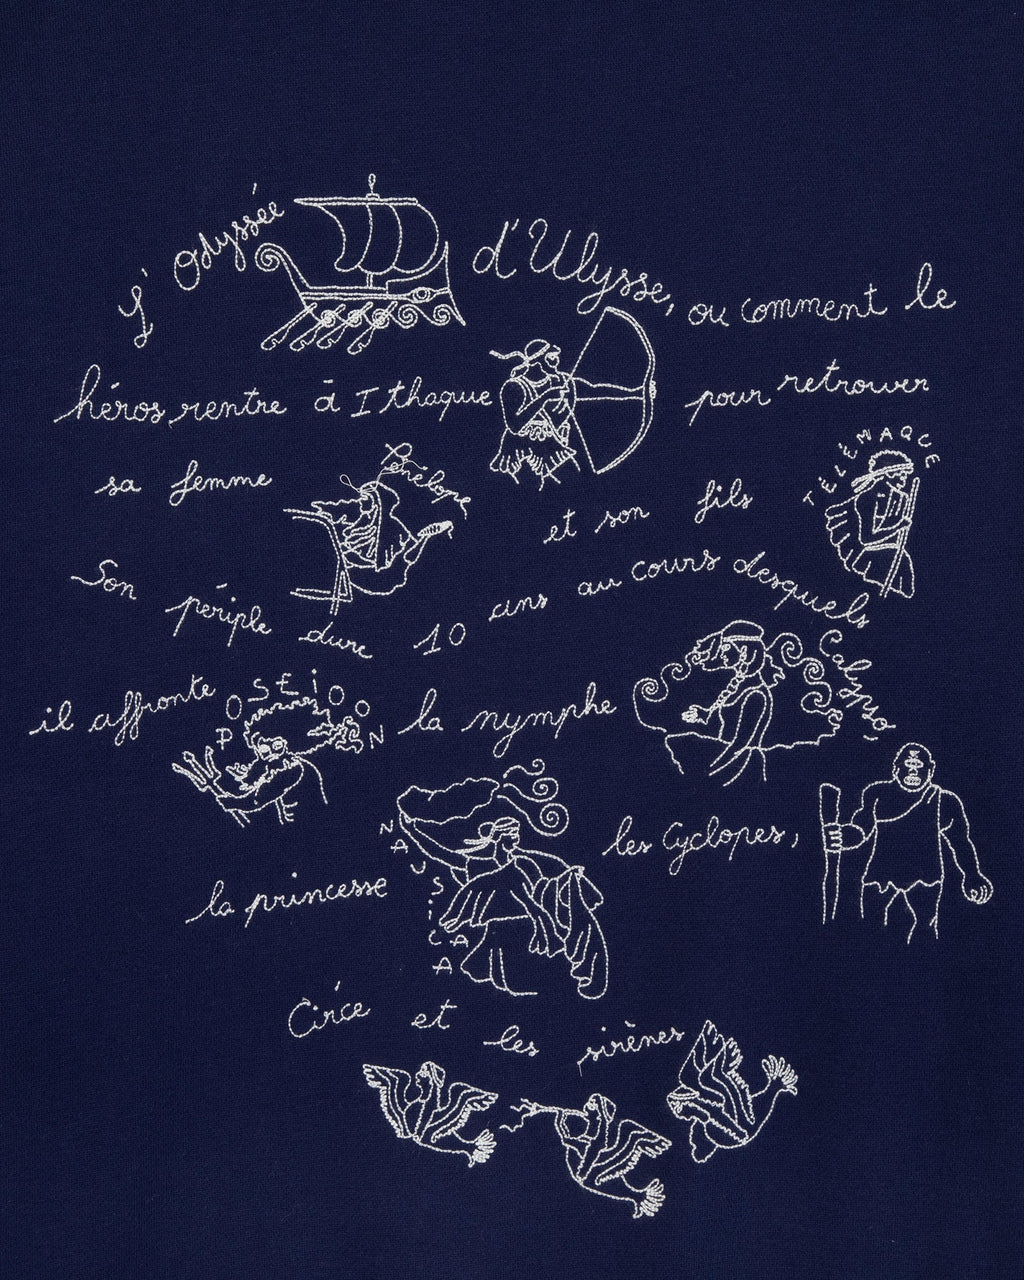 L'Odyssée d'Ulysse, ou comment le
héros rentre à Ithaque pour retrouver
sa femme Pénélope et son fils TÉLÉMAQUE
Son périple dure 10 ans au cours desquels
il affronte POSEIDON la nymphe Calypso,
les Cyclopes,
la princesse NAUSiCAA
Circé et les sirènes